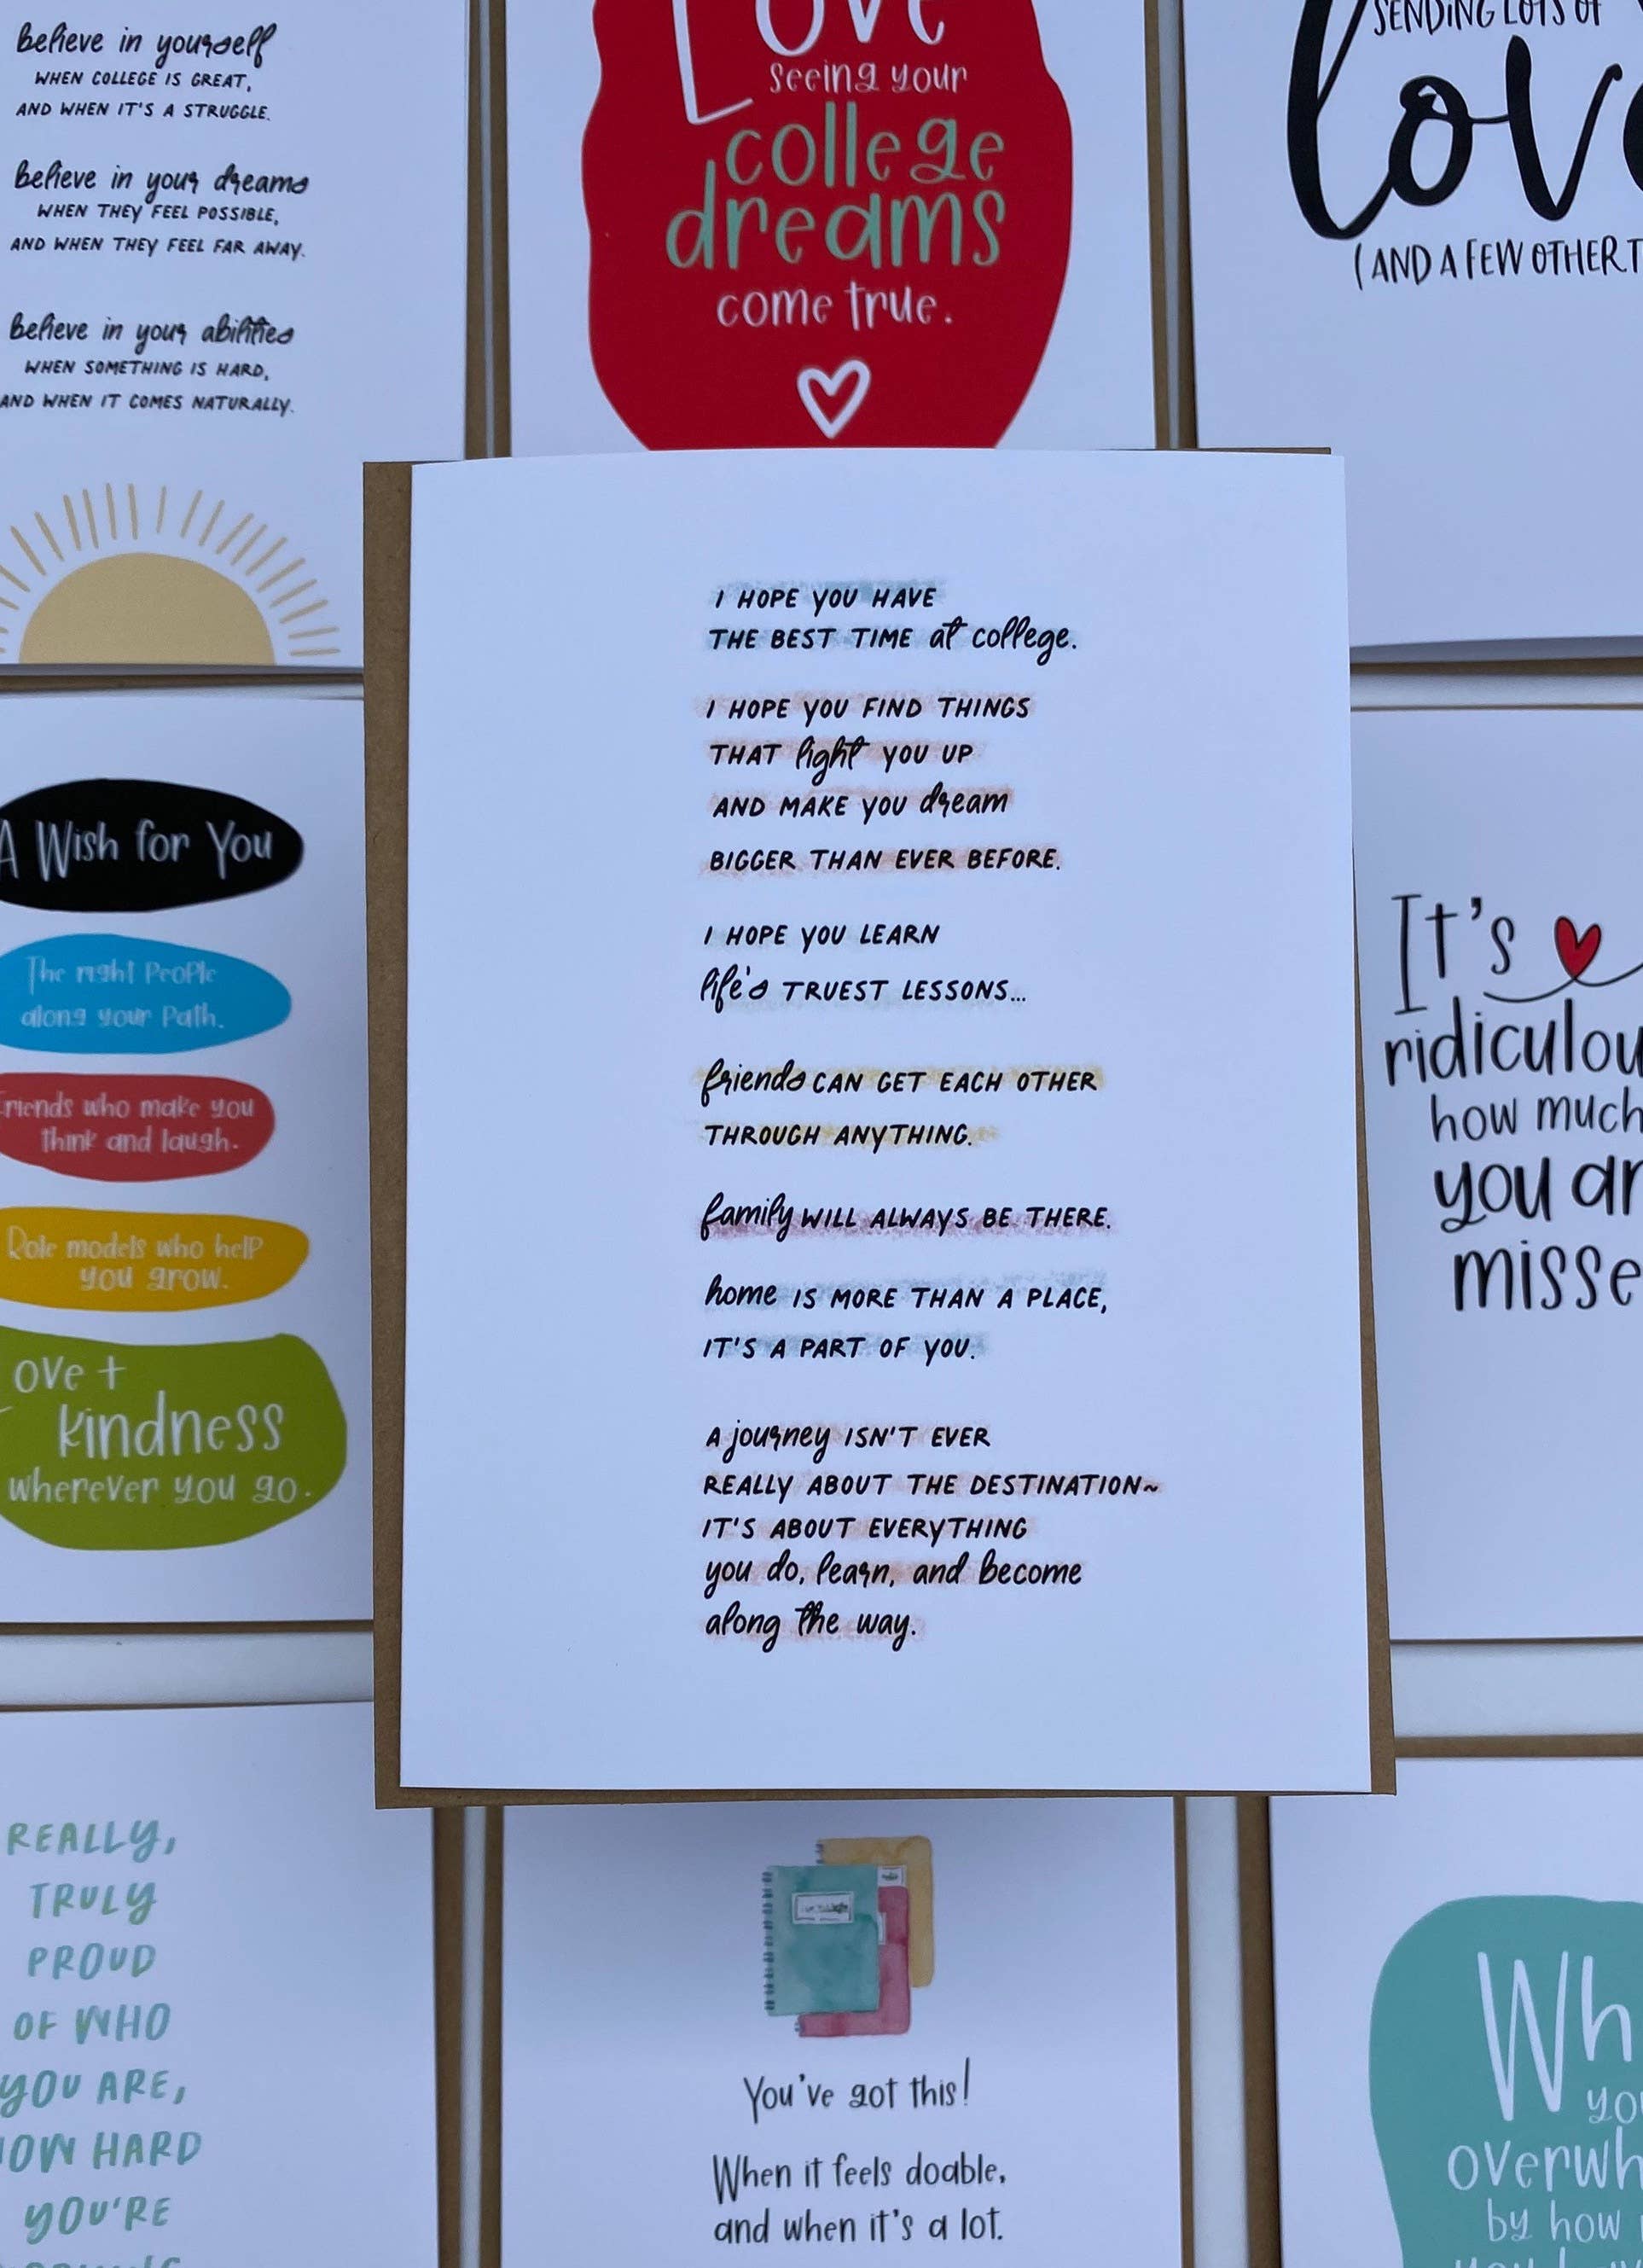 believe in yourself
WHEN COLLEGE IS GREAT,
AND WHEN IT'S A STRUGGLE.
believe in your dreams
WHEN THEY FEEL POSSIBLE,
AND WHEN THEY FEEL FAR AWAY.
believe in your abilities
WHEN SOMETHING IS HARD,
AND WHEN IT COMES NATURALLY.
Love
seeing your
college
dreams
come true.
SENDING LOTS OF
love
(AND A FEW OTHER
A Wish for You
The right People
along your Path.
Friends who make you
think and laugh.
Role models who help
you grow.
Love +
kindness
wherever you go.
I HOPE YOU HAVE
THE BEST TIME at college.
I HOPE YOU FIND THINGS
THAT light YOU UP
AND MAKE YOU dream
BIGGER THAN EVER BEFORE.
I HOPE YOU LEARN
life's TRUEST LESSONS...
friends CAN GET EACH OTHER
THROUGH ANYTHING.
family WILL ALWAYS BE THERE.
home IS MORE THAN A PLACE,
IT'S A PART OF YOU.
A journey ISN'T EVER
REALLY ABOUT THE DESTINATION~
IT'S ABOUT EVERYTHING
you do, learn, and become
along the way.
It's
ridiculou
how much
you ar
misse
REALLY,
TRULY
PROUD
OF WHO
YOU ARE,
HOW HARD
YOU'RE
You've got this!
When it feels doable,
and when it's a lot.
Wh
you
overwh
by how